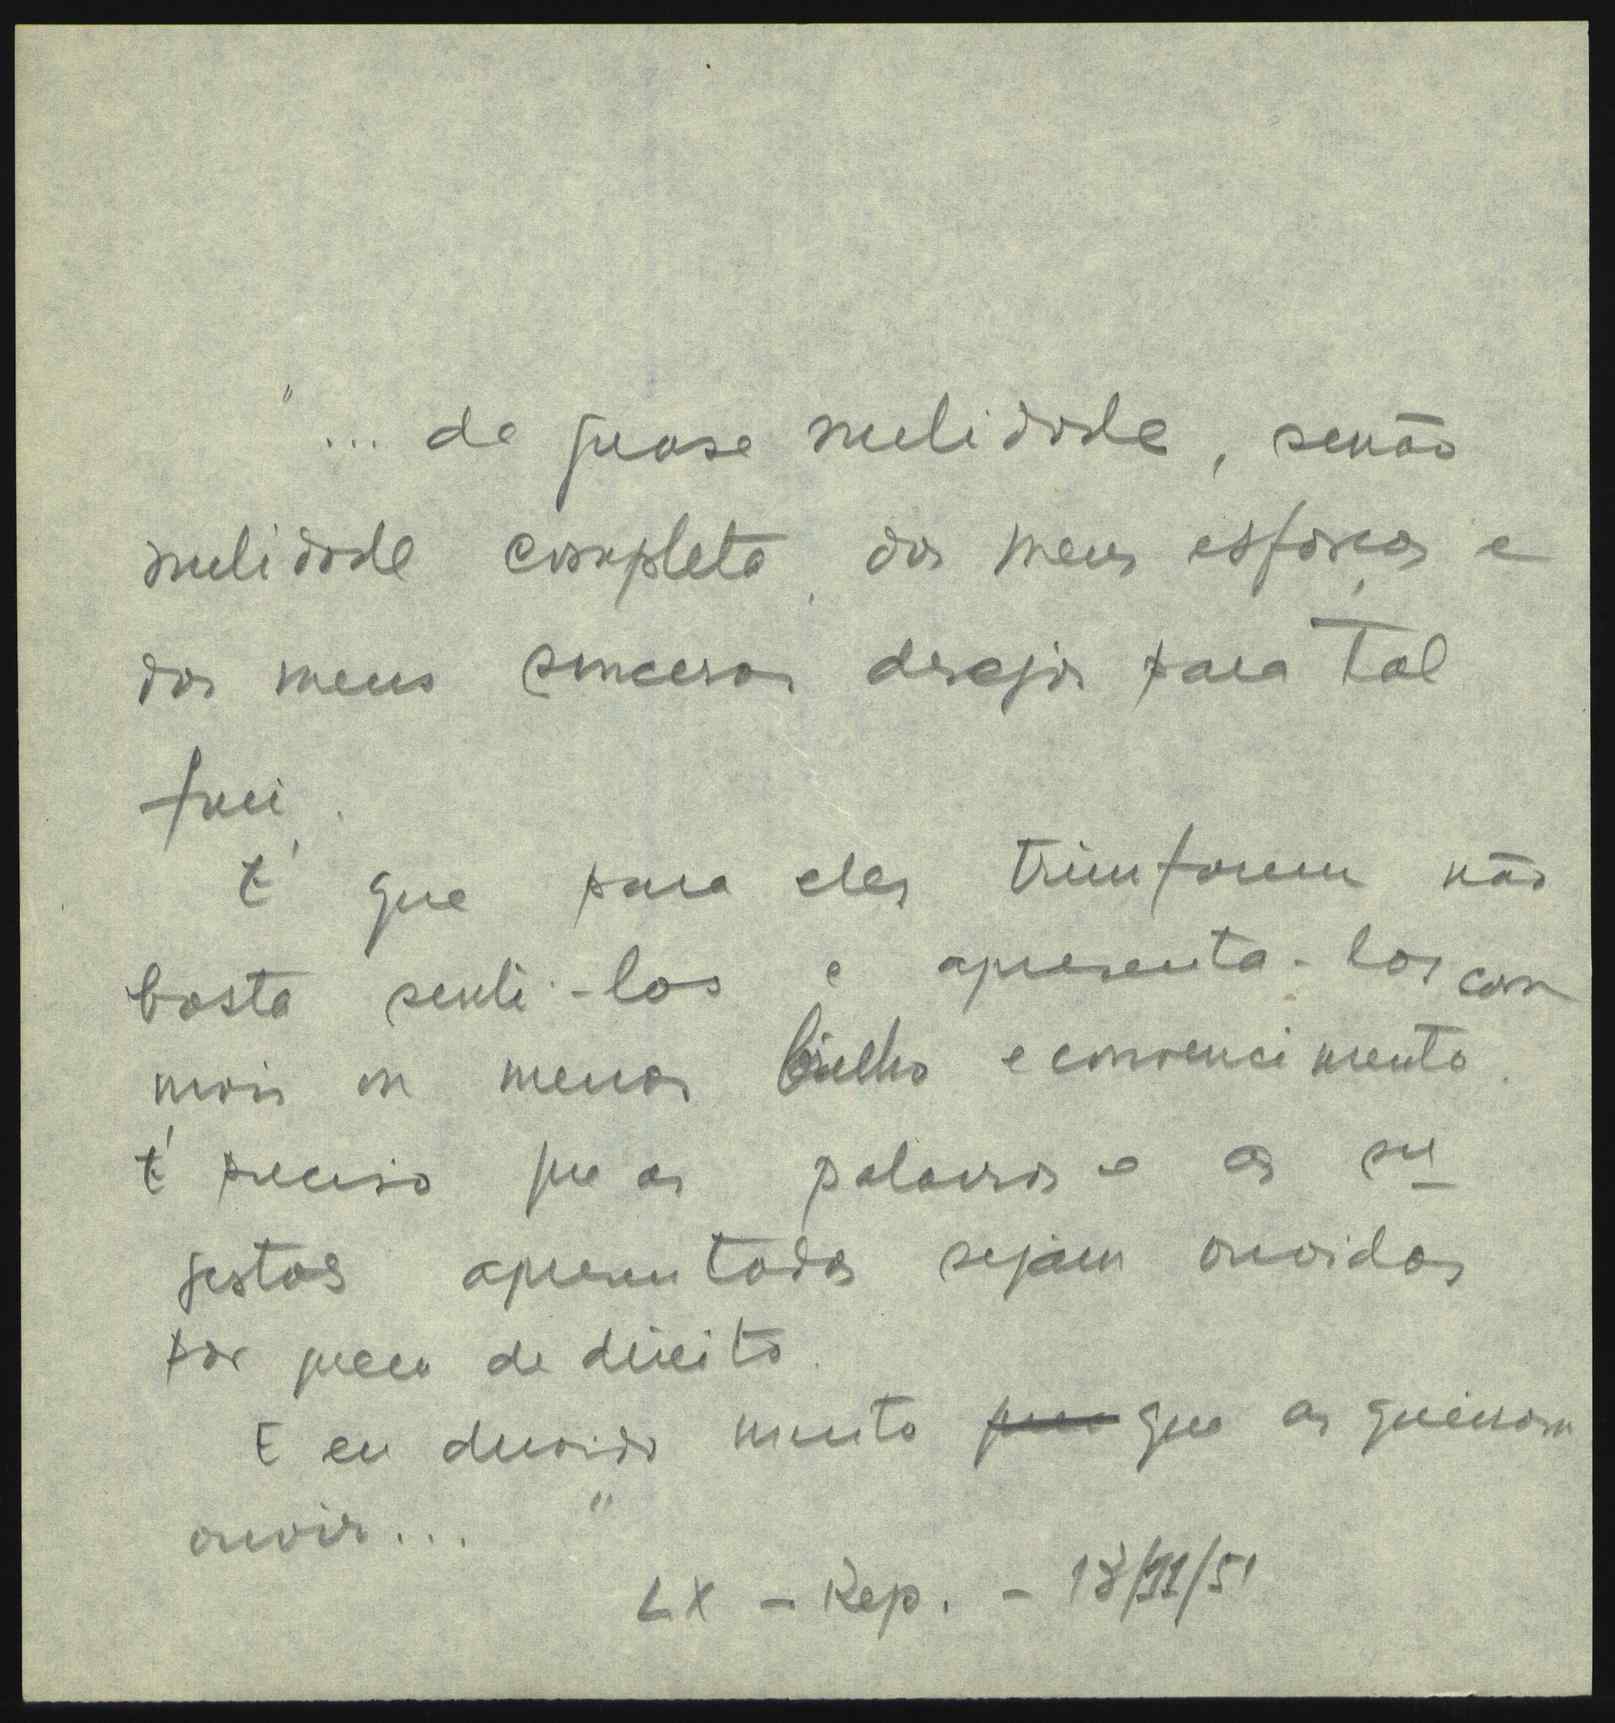 "... de quase nulidade, senão
nulidade completa, dos meus esforços e
dos meus sinceros desejos para tal
fim.
É que para eles triunfarem não
basta senti-los e apresenta-los com
mais ou menos brilho e convencimento.
É preciso que as palavras e as su
gestões apresentadas sejam ouvidas
por quem de direito.
E eu duvido muito que que as queiram
ouvir..."
LX - Rep. - 18/11/51